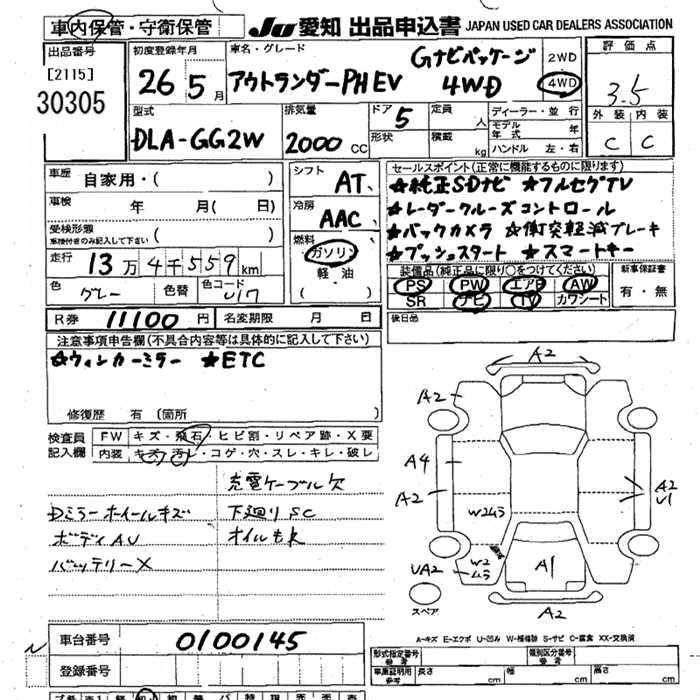 車内保管・守衛保管 JU 愛知 出品申込書 JAPAN USED CAR DEALERS ASSOCIATION
出品番号 [2115] 30305
初度登録年月 26 5月
車名・グレード Gナビパッケージ アウトランダーPHEV 4WD
2WD 4WD
評価点 3.5
外装 内装 C C
型式 DLA-GG2W
排気量 2000 CC
ドア 5 形状
定員 人 積載 kg
ディーラー・並行
モデル年式 年
ハンドル 左・右
車歴 自家用・( )
車検 年 月( 日)
受検形態 車検付きのみ記入して下さい
走行 13万4千559km
色 グレー 色替 色コード U17
シフト AT、
冷房 AAC
燃料 ガソリン 軽・油
セールスポイント(正常に機能するものに限ります)
★純正SDナビ ★フルセグTV
★レーダークルーズコントロール
★バックカメラ ☆衝突軽減ブレーキ
★プッシュスタート ★スマートキー
装備品(純正品に限り○をつけてください)
PS PW エアB AW
SR ナビ TV カワシート
新車保証書 有・無
R券 11100円 名変期限 月 日
後日品
注意事項申告欄(不具合内容等は具体的に記入して下さい)
★ウィンカーミラー ★ETC
修復歴 有 (箇所
検査員記入欄
FW キズ・飛石・ヒビ割・リペア跡・X要
内装 キズ・汚レ・コゲ・穴・スレ・キレ・破レ
充電ケーブル欠
Dミラーホイールキズ 下廻りSC
ボディAU オイルもれ
バッテリーX
A2
A2
A4
A2
A2
U1
W2ムラ
UA2
W2
ムラ
A1
A2
スペア
A-キズ E-エクボ U-凹み W-補修跡 S-サビ C-腐食 XX-交換済
車台番号 0100145
登録番号
形式指定番号 参考
類別区分番号 参考
車庫証明用 参考 長さ cm 幅 cm 高さ cm